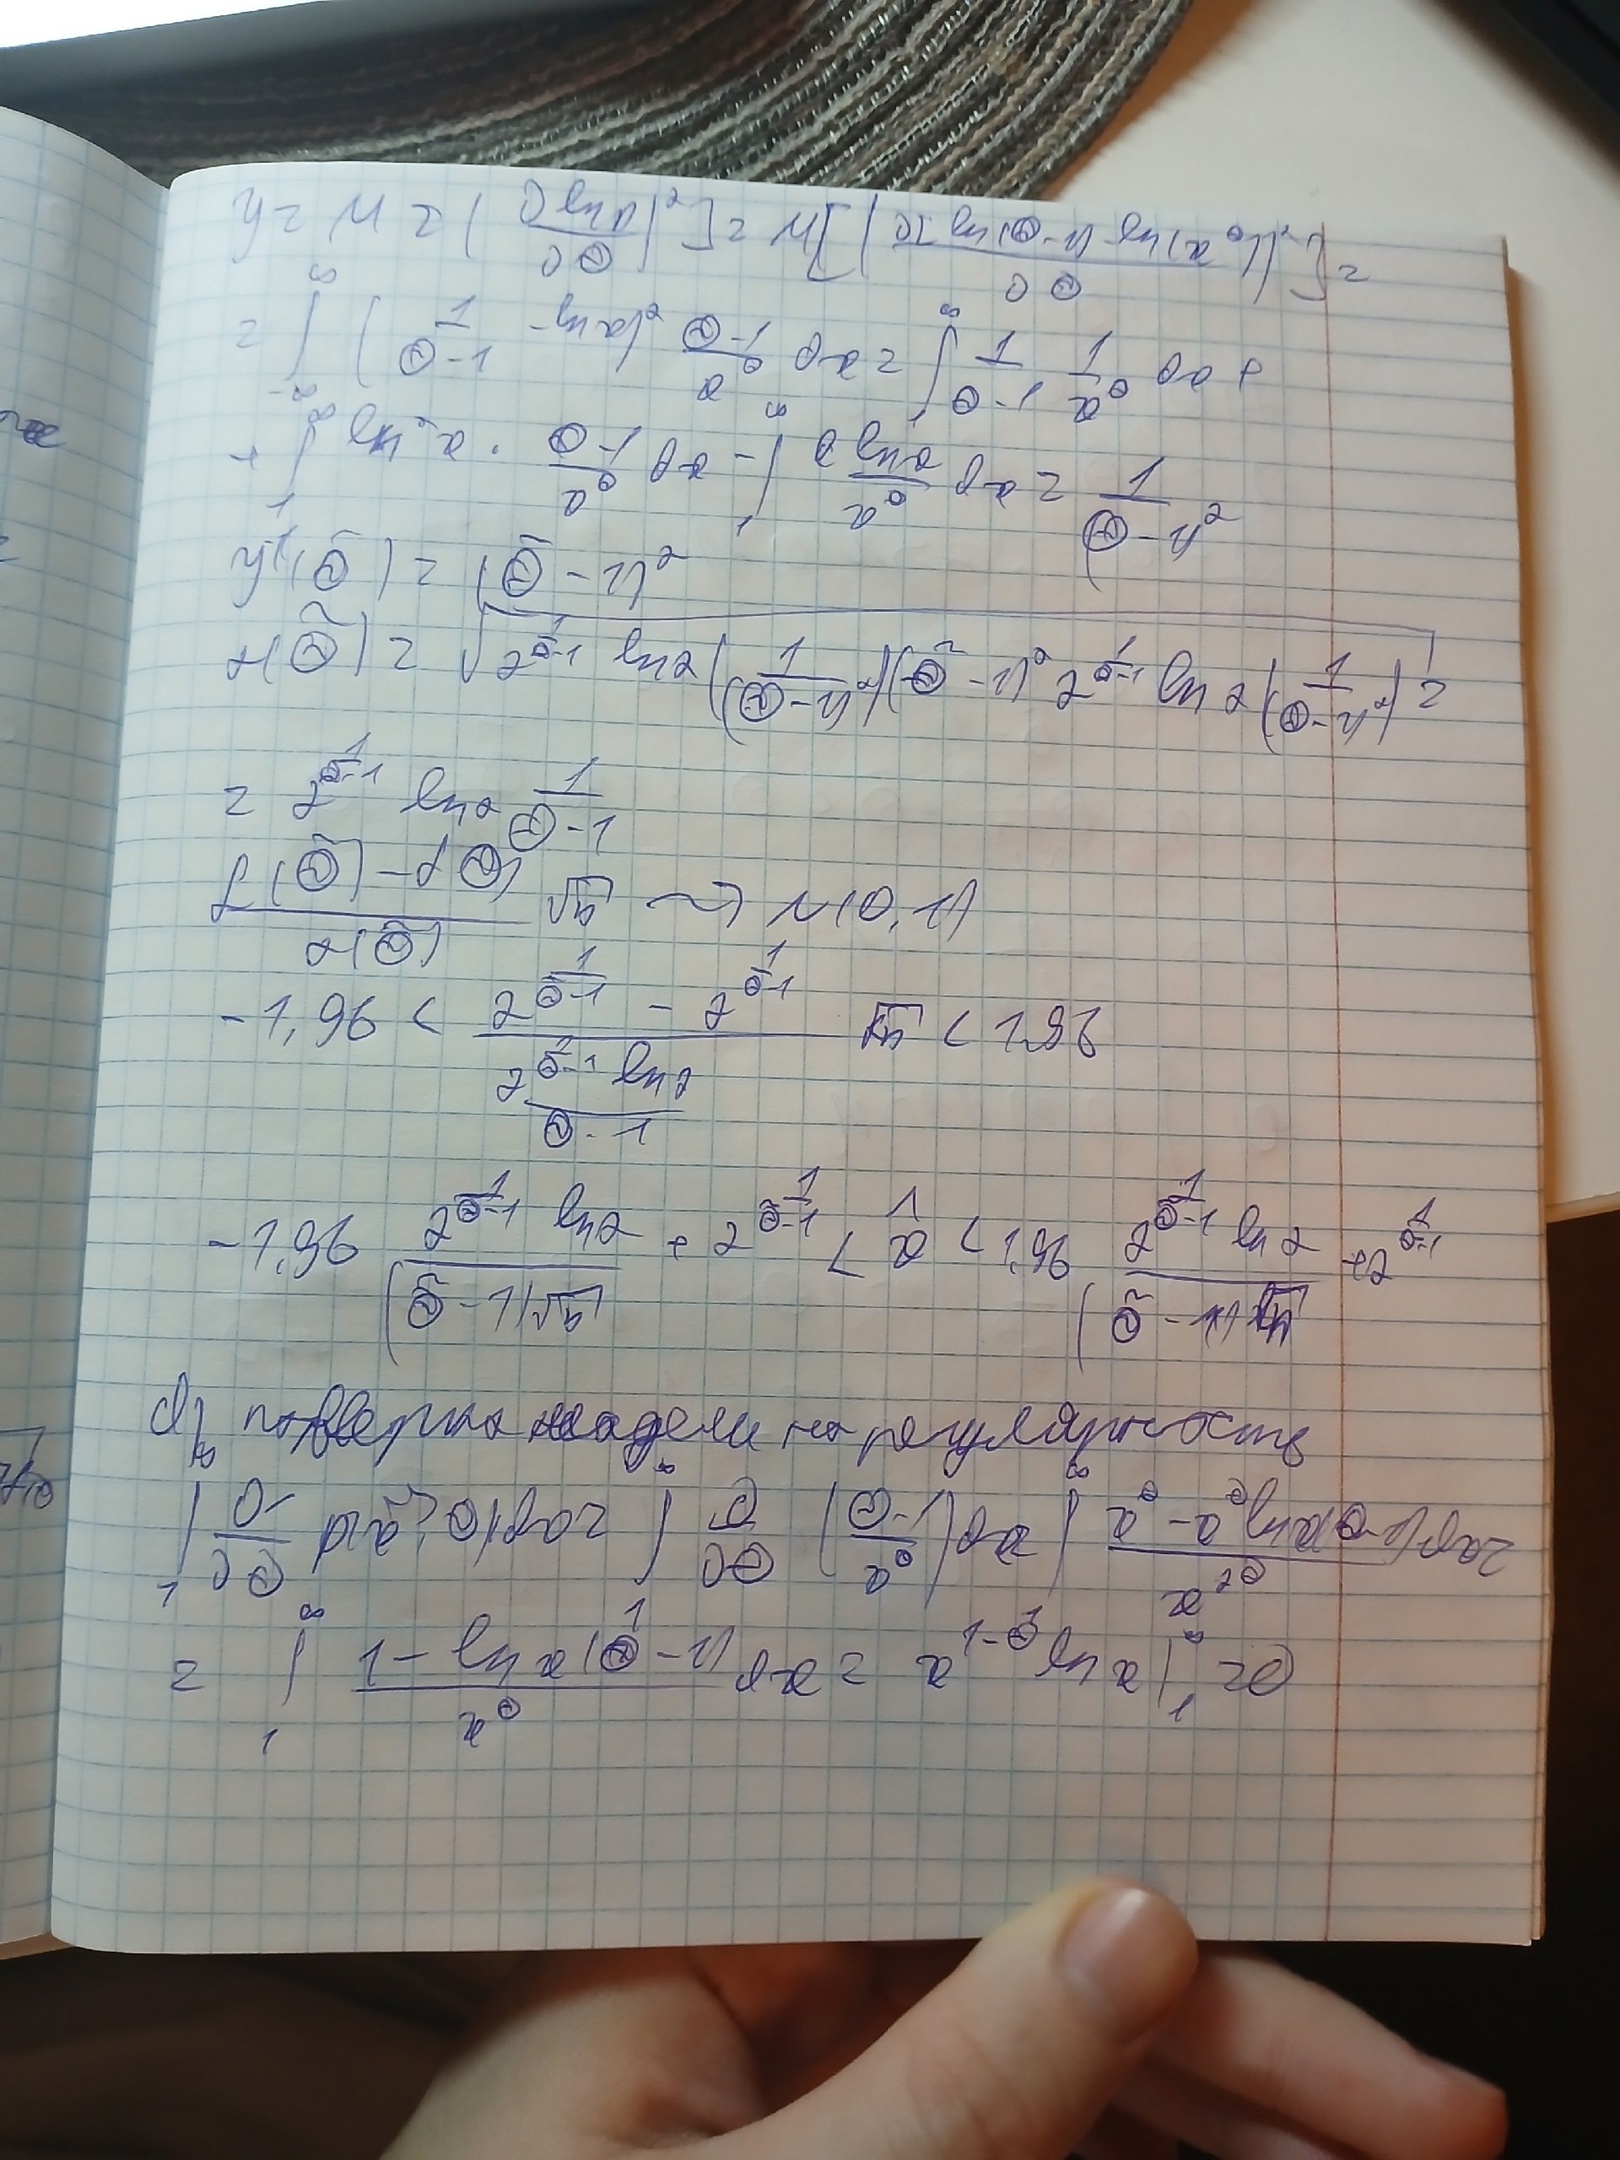 y = M = ( ∂ ln p / ∂Θ )² ] = M[ ( ∂[ ln(Θ-1) - ln(x^Θ) ] / ∂Θ )² ] =
= ∫_{-∞}^{∞} ( 1/(Θ-1) - ln x )² (Θ-1)/x^Θ dx = ∫_1^∞ 1/(Θ-1) 1/x^Θ dx +
+ ∫_1^∞ ln² x · (Θ-1)/x^Θ dx - ∫_1^∞ 2 ln x / x^Θ dx = 1/(Θ-1)²
y⁻¹(Θ̃) = (Θ̃ - 1)²
(Θ̃) = √( 2^{1/(Θ̃-1)} ln 2 ( 1/(Θ-1)² ) (Θ̃-1)² 2^{1/(Θ̃-1)} ln 2 ( 1/(Θ-1)² ) ) =
= 2^{1/(Θ̃-1)} ln 2 1/(Θ-1)
( f(Θ̃) - f(Θ) ) / (Θ̃) √n ~> N(0,1)
-1,96 < ( 2^{1/(Θ̃-1)} - 2^{1/(Θ̃-1)} ) / ( 2^{1/(Θ̃-1)} ln 2 / (Θ-1) ) √n < 1.96
-1,96 2^{1/(Θ̃-1)} ln 2 / ((Θ̃-1)√n) + 2^{1/(Θ̃-1)} < x̂ < 1,96 2^{1/(Θ̃-1)} ln 2 / ((Θ̃-1)√n) + 2^{1/(Θ̃-1)}
d) на регулярность
∫_1^∞ ∂/∂Θ p(x, Θ) dx = ∫ ∂/∂Θ ( (Θ-1)/x^Θ ) dx ∫^∞ ( x^Θ - x^Θ ln x (Θ-1) ) / x^{2Θ} dx =
= ∫_1^∞ ( 1 - ln x (Θ-1) ) / x^Θ dx = x^{1-Θ} ln x |_1^∞ = 0